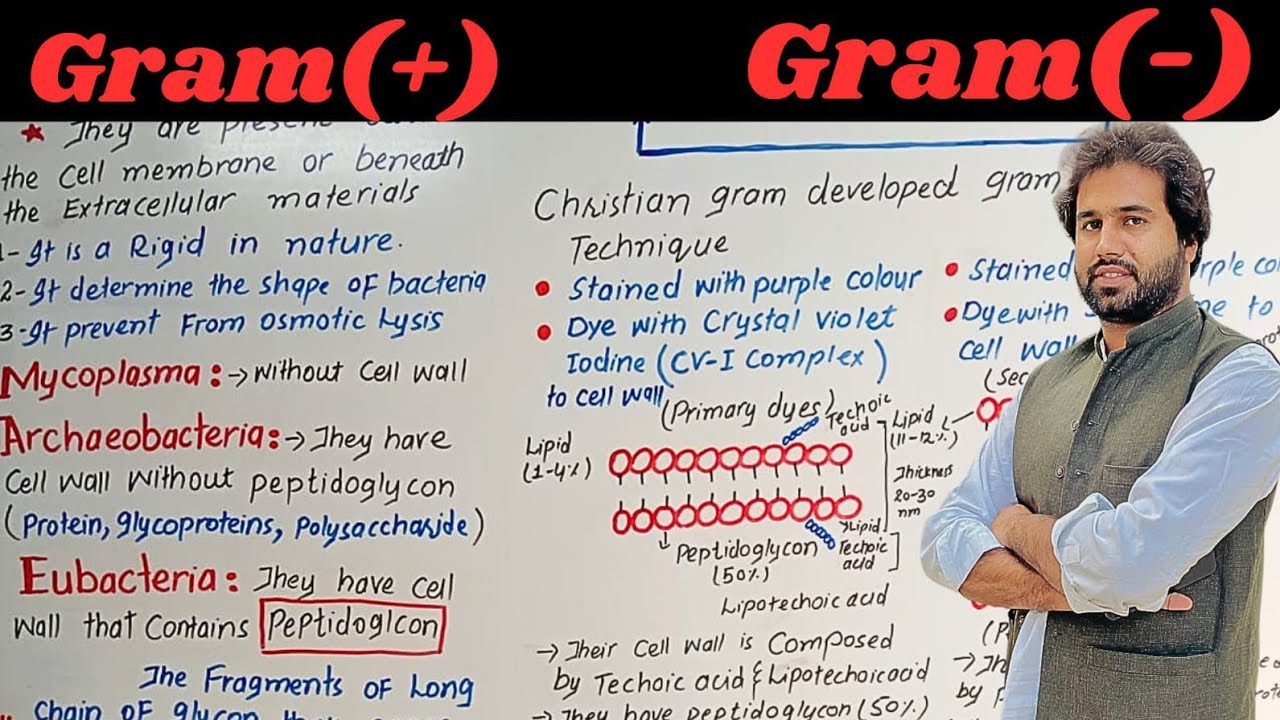 Gram(+)
Gram(-)
★ They are present
the cell membrane or beneath
the Extracellular materials
1- It is a Rigid in nature.
2- It determine the shape of bacteria
3- It prevent From osmotic Lysis
Mycoplasma: → without cell wall
Archaeobacteria: → They have
cell wall without peptidoglycon
(Protein, glycoproteins, polysaccharide)
Eubacteria: They have cell
wall that contains Peptidoglcon
The Fragments of Long
Chain of glycon
Christian gram developed gram
Technique
• Stained with purple colour
• Dye with Crystal violet
Iodine (CV-I complex)
to cell wall
(Primary dyes)
Techoic
acid
Lipid
(1-4%)
Lipid
(11-12%)
Thickness
20-30
nm
Lipid
Techoic
acid
peptidoglycon
(50%)
Lipotechoic acid
→ Their cell wall is composed
by Techoic acid & Lipotechoic acid
→ They have peptidoglycon (50%)
• Stained
• Dye with
to
cell wall
(Sec
→ Th
by